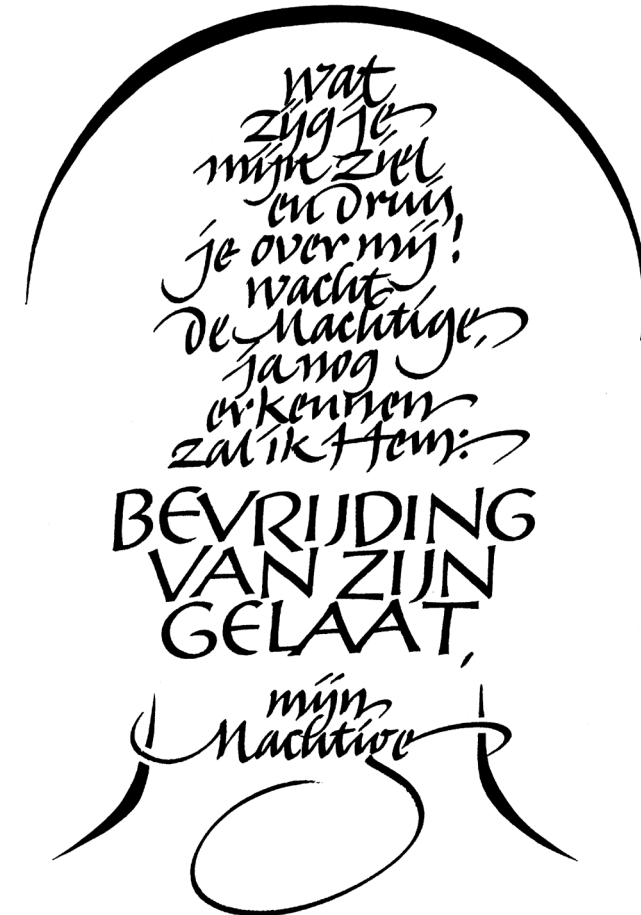 wat
zijg je
mijn ziel
en druis
je over mij!
wacht
de Machtige,
ja nog
erkennen
zal ik Hem:
BEVRIJDING
VAN ZIJN
GELAAT,
mijn
Machtige